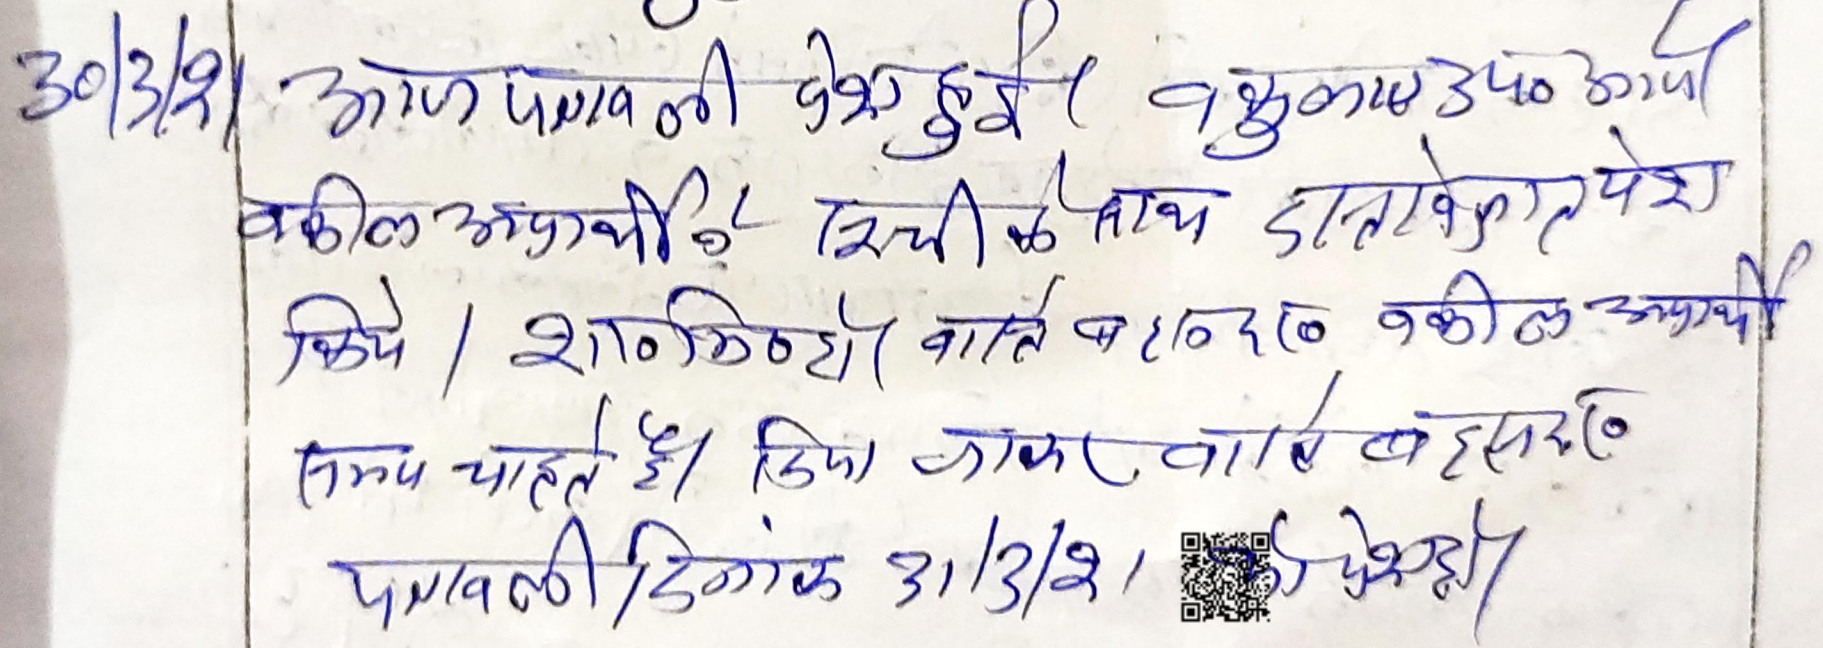 30/3/21 आज पत्रावली पेश हुई। वकुलाय उप० आये
वकील अप्रार्थी ने सूची के साथ दस्तावेजात पेश
किये। शा० मि० हो। वास्ते बहस द० वकील अप्रार्थी
समय चाहते है। दिया जाकर वास्ते बहस द०
पत्रावली दिनांक 31/3/21 को पेश हो।